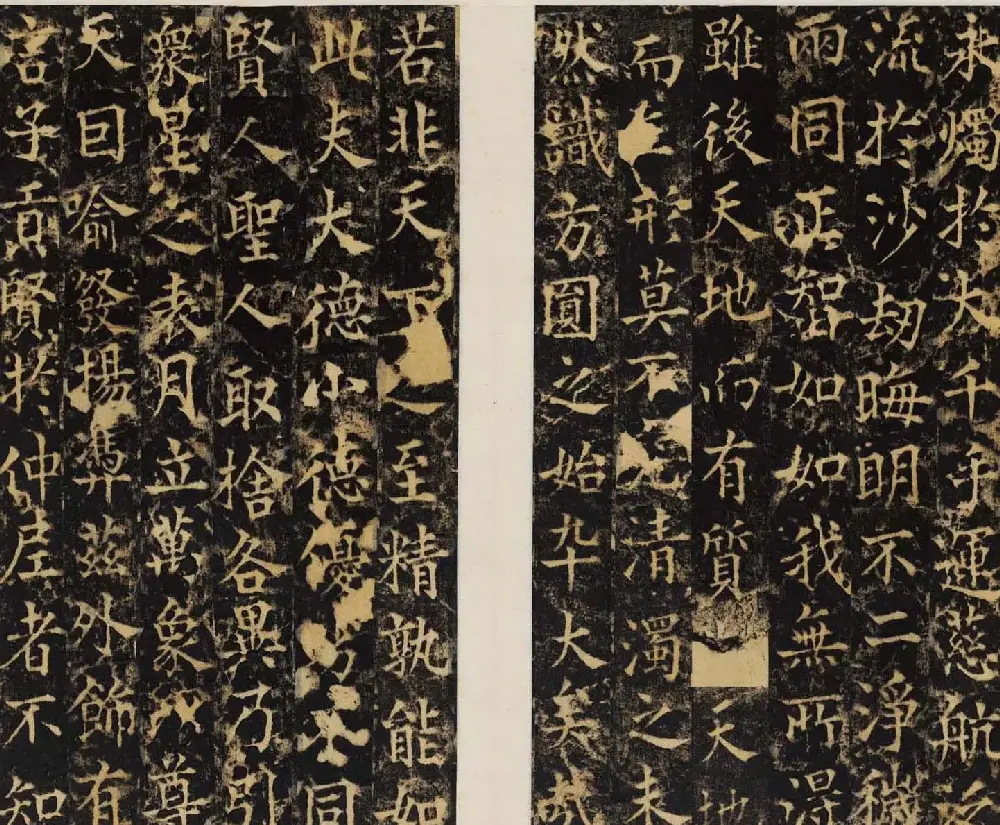 永燭於大千手運慈航泛
流於沙劫晦明不二淨穢
兩同正智如如我無所得
雖後天地而有質天地
而生形莫不元清濁之未
然識方圓之始卒大矣哉
若非天下之至精孰能如
此夫大德小德優劣不同
賢人聖人取捨各異乃引
衆星之表月立萬象以尊
天因喻發揚馮茲外飾有
言子貢賢於仲尼者不知